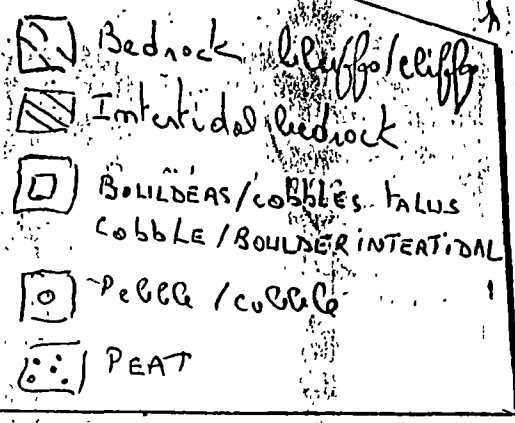 Bedrock bluffs/cliffs
Intertidal bedrock
BOULDERS/cobbLES TALUS
CobbLE/BOULDER INTERTIDAL
Pebble/cobble
PEAT